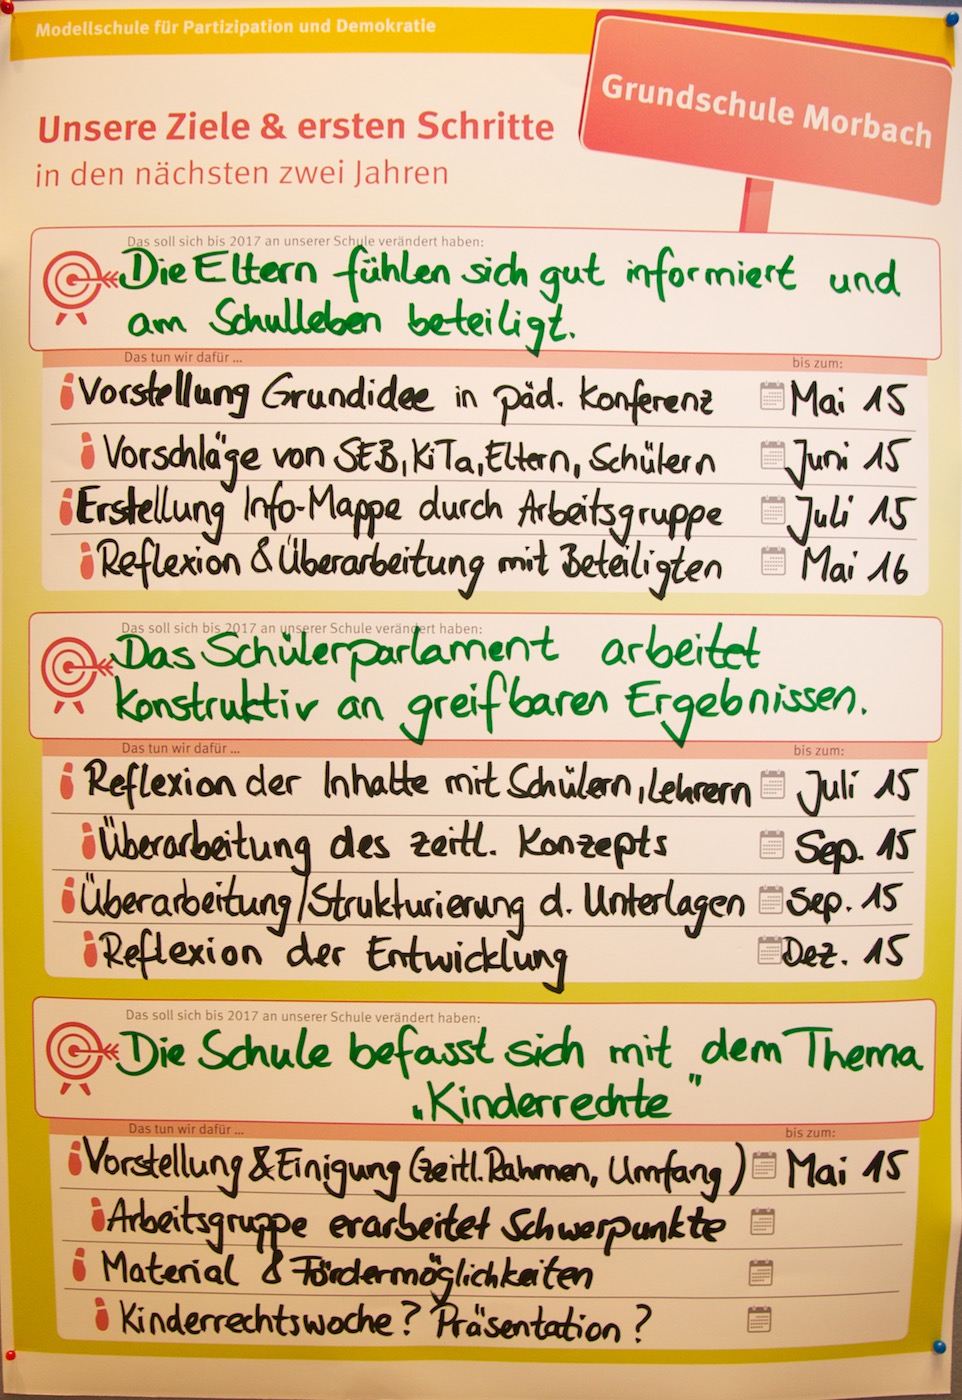 Modellschule für Partizipation und Demokratie
Grundschule Morbach
Unsere Ziele & ersten Schritte
in den nächsten zwei Jahren
Das soll sich bis 2017 an unserer Schule verändert haben:
Die Eltern fühlen sich gut informiert und
am Schulleben beteiligt.
Das tun wir dafür ... bis zum:
Vorstellung Grundidee in päd. Konferenz Mai 15
Vorschläge von SEB, KiTa, Eltern, Schülern Juni 15
Erstellung Info-Mappe durch Arbeitsgruppe Juli 15
Reflexion & Überarbeitung mit Beteiligten Mai 16
Das soll sich bis 2017 an unserer Schule verändert haben:
Das Schülerparlament arbeitet
konstruktiv an greifbaren Ergebnissen.
Das tun wir dafür ... bis zum:
Reflexion der Inhalte mit Schülern, Lehrern Juli 15
Überarbeitung des zeitl. Konzepts Sep. 15
Überarbeitung/Strukturierung d. Unterlagen Sep. 15
Reflexion der Entwicklung Dez. 15
Das soll sich bis 2017 an unserer Schule verändert haben:
Die Schule befasst sich mit dem Thema
„Kinderrechte"
Das tun wir dafür ... bis zum:
Vorstellung & Einigung (zeitl. Rahmen, Umfang) Mai 15
Arbeitsgruppe erarbeitet Schwerpunkte
Material & Fördermöglichkeiten
Kinderrechtswoche? Präsentation?